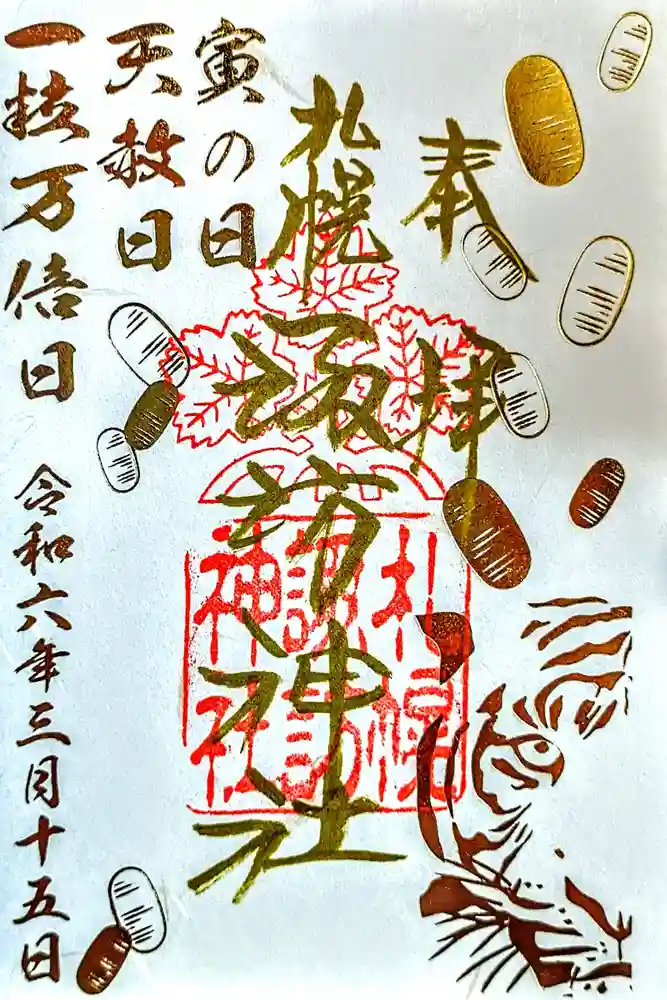 奉拝
札幌諏訪神社
札幌
諏訪
神社
寅の日
天赦日
一粒万倍日
令和六年三月十五日